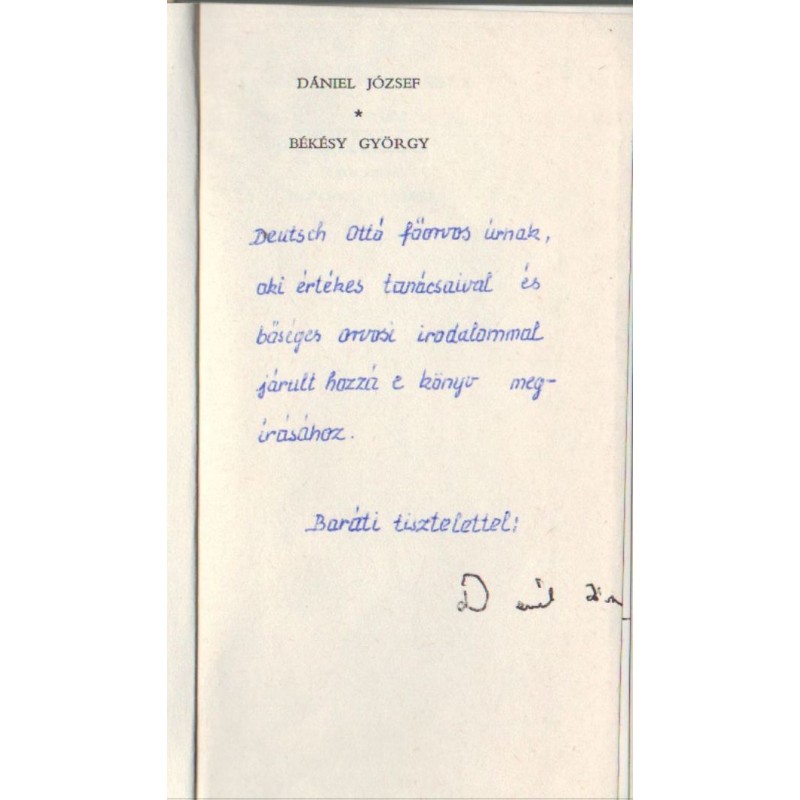 DÁNIEL JÓZSEF
*
BÉKÉSY GYÖRGY
Deutsch Ottó főorvos úrnak,
aki értékes tanácsaival és
bőséges orvosi irodalommal
járult hozzá e könyv meg-
írásához.
Baráti tisztelettel: